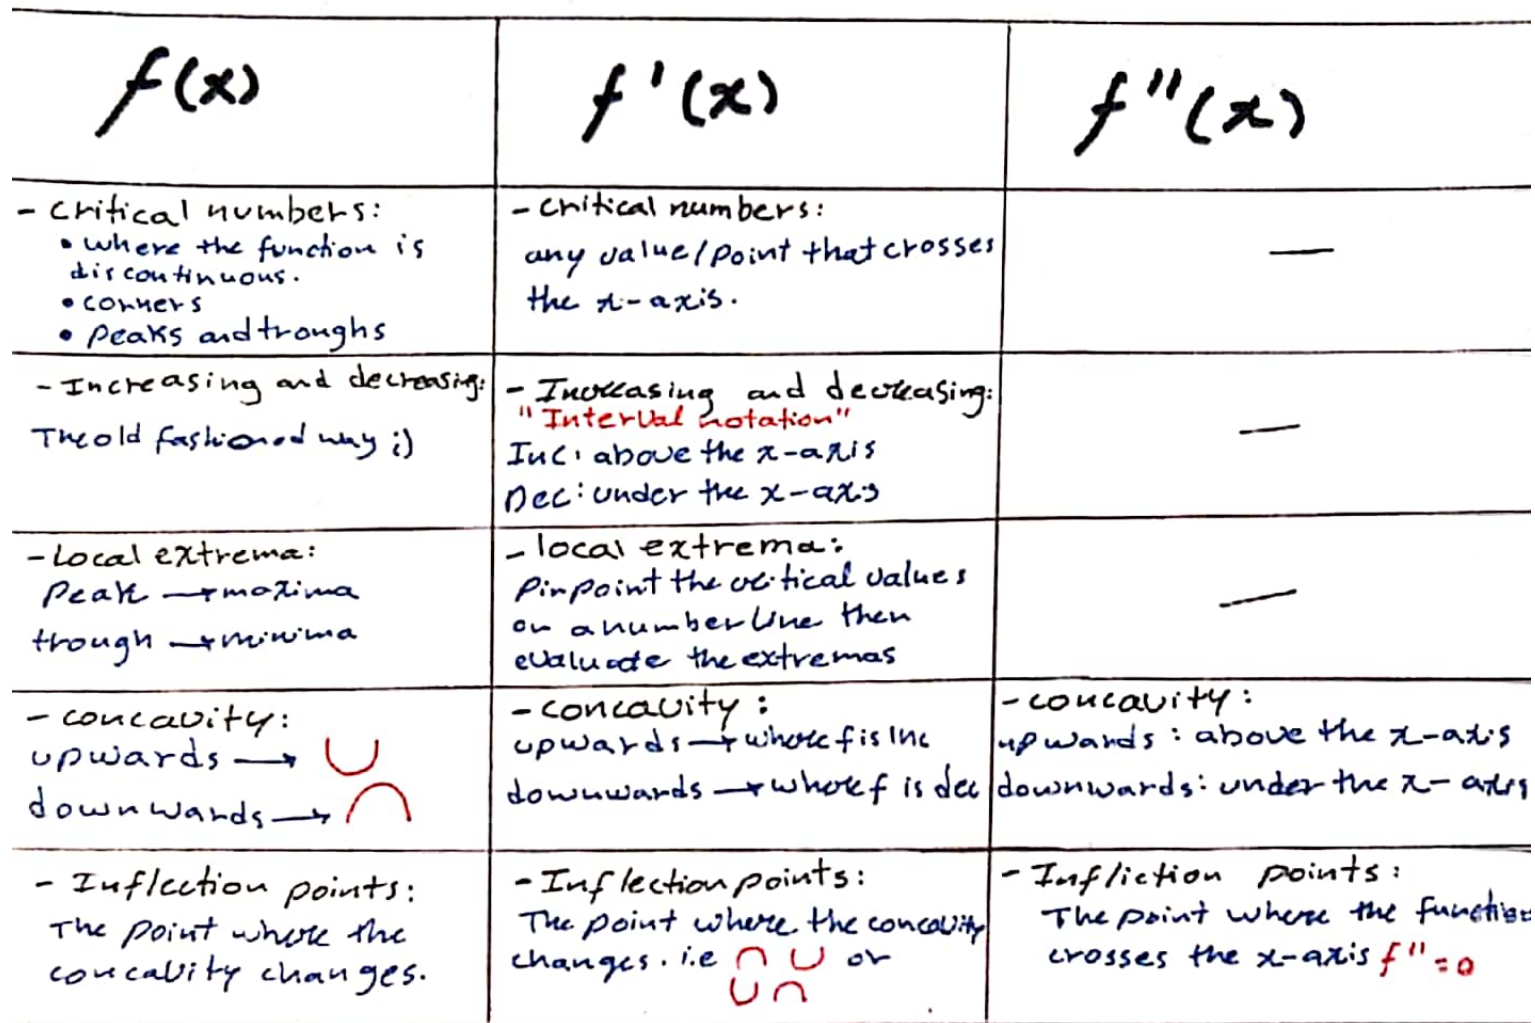 f(x)
f'(x)
f"(x)
- Critical numbers:
• where the function is
discontinuous.
• corners
• Peaks and troughs
- Critical numbers:
any value/point that crosses
the x-axis.
—
- Increasing and decreasing:
The old fashioned way ;)
- Increasing and decreasing:
"Interval notation"
Inc: above the x-axis
Dec: under the x-axis
—
- Local extrema:
Peak → maxima
trough → minima
- local extrema:
Pinpoint the critical values
on a number line then
evaluate the extremas
—
- concavity:
upwards → ∪
downwards → ∩
- concavity:
upwards → where f is Inc
downwards → where f is dec
- concavity:
upwards: above the x-axis
downwards: under the x-axis
- Inflection points:
The point where the
concavity changes.
- Inflection points:
The point where the concavity
changes. i.e ∩ ∪ or
∪ ∩
- Infliction points:
The point where the function
crosses the x-axis f" = 0